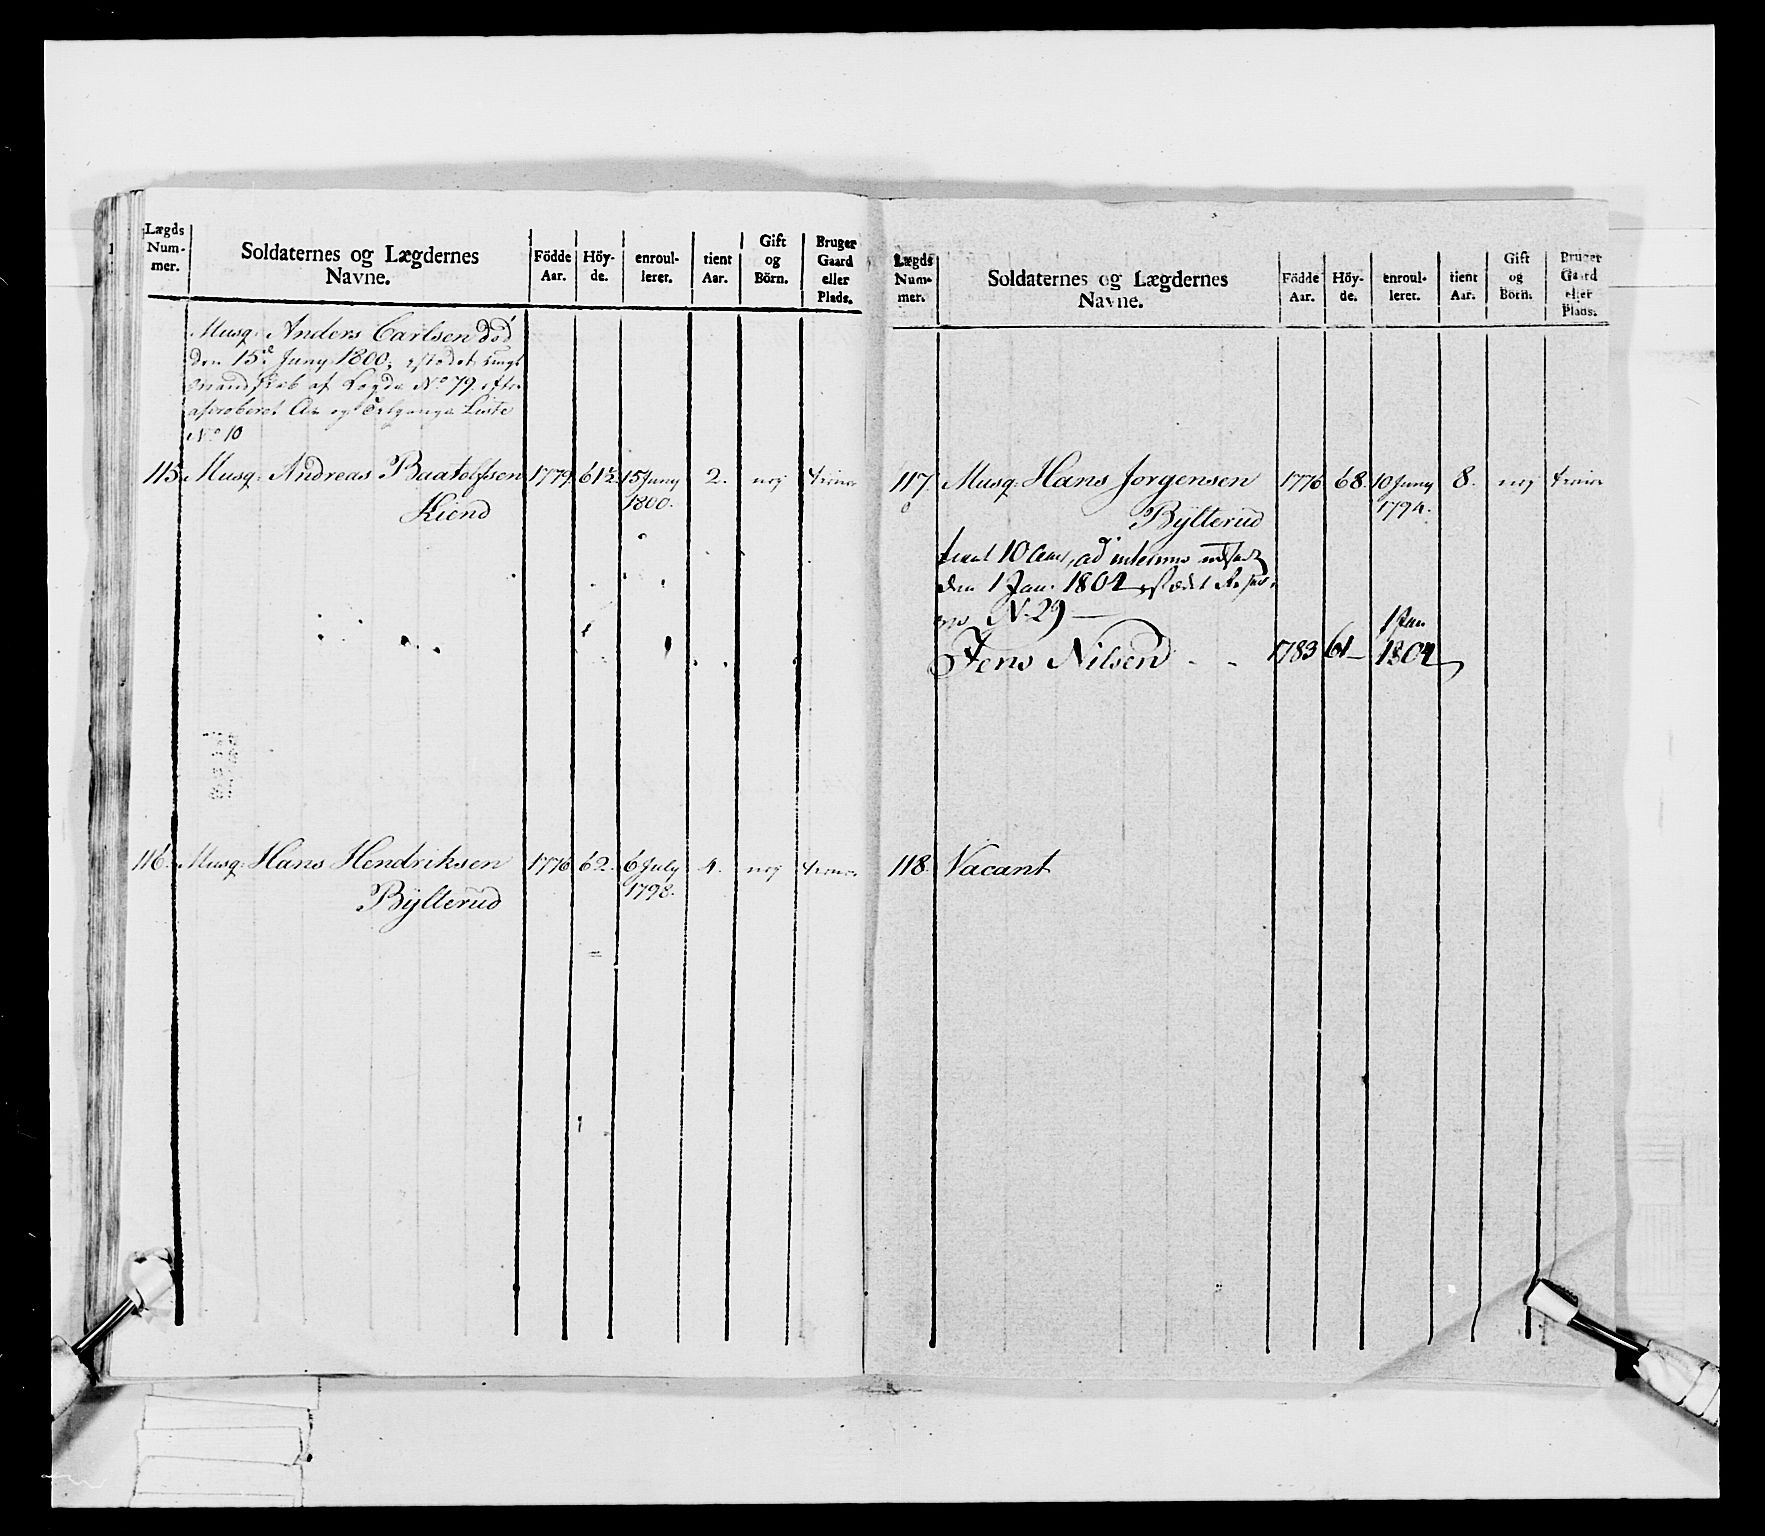 Lægds
Num-
mer.
Soldaternes og Lægdernes
Navne.
Födde
Aar.
Höy-
de.
enroul-
leret.
tient
Aar.
Gift
og
Börn.
Bruger
Gaard
eller
Plads.
Musq: Anders Carlsen död
den 15de Juny 1800,
Mandskab af Legde No 79 efter
aproberet Af og Tilgangs Liste
No 10
115. Musq: Andreas Baatolfsen 1779. 61½. 15 Juny 2. nej
Kiend 1800.
116. Musq: Hans Hendriksen 1776 62. 6 July 4. nej
Bÿlterud 1798.
Lægds
Num-
mer.
Soldaternes og Lægdernes
Navne.
Födde
Aar.
Höy-
de.
enroul-
leret.
tient
Aar.
Gift
og
Börn.
Bruger
Gaard
eller
Plads.
117. Musq: Hans Jorgensen 1776 68. 10 Juny 8. nej
Bÿlterud 1794.
tient 10 Aar, ad interims
den 1 Jan: 1804
No 29
1 Jan
Jens Nilsen - - 1783 61 1804
118. Vacant